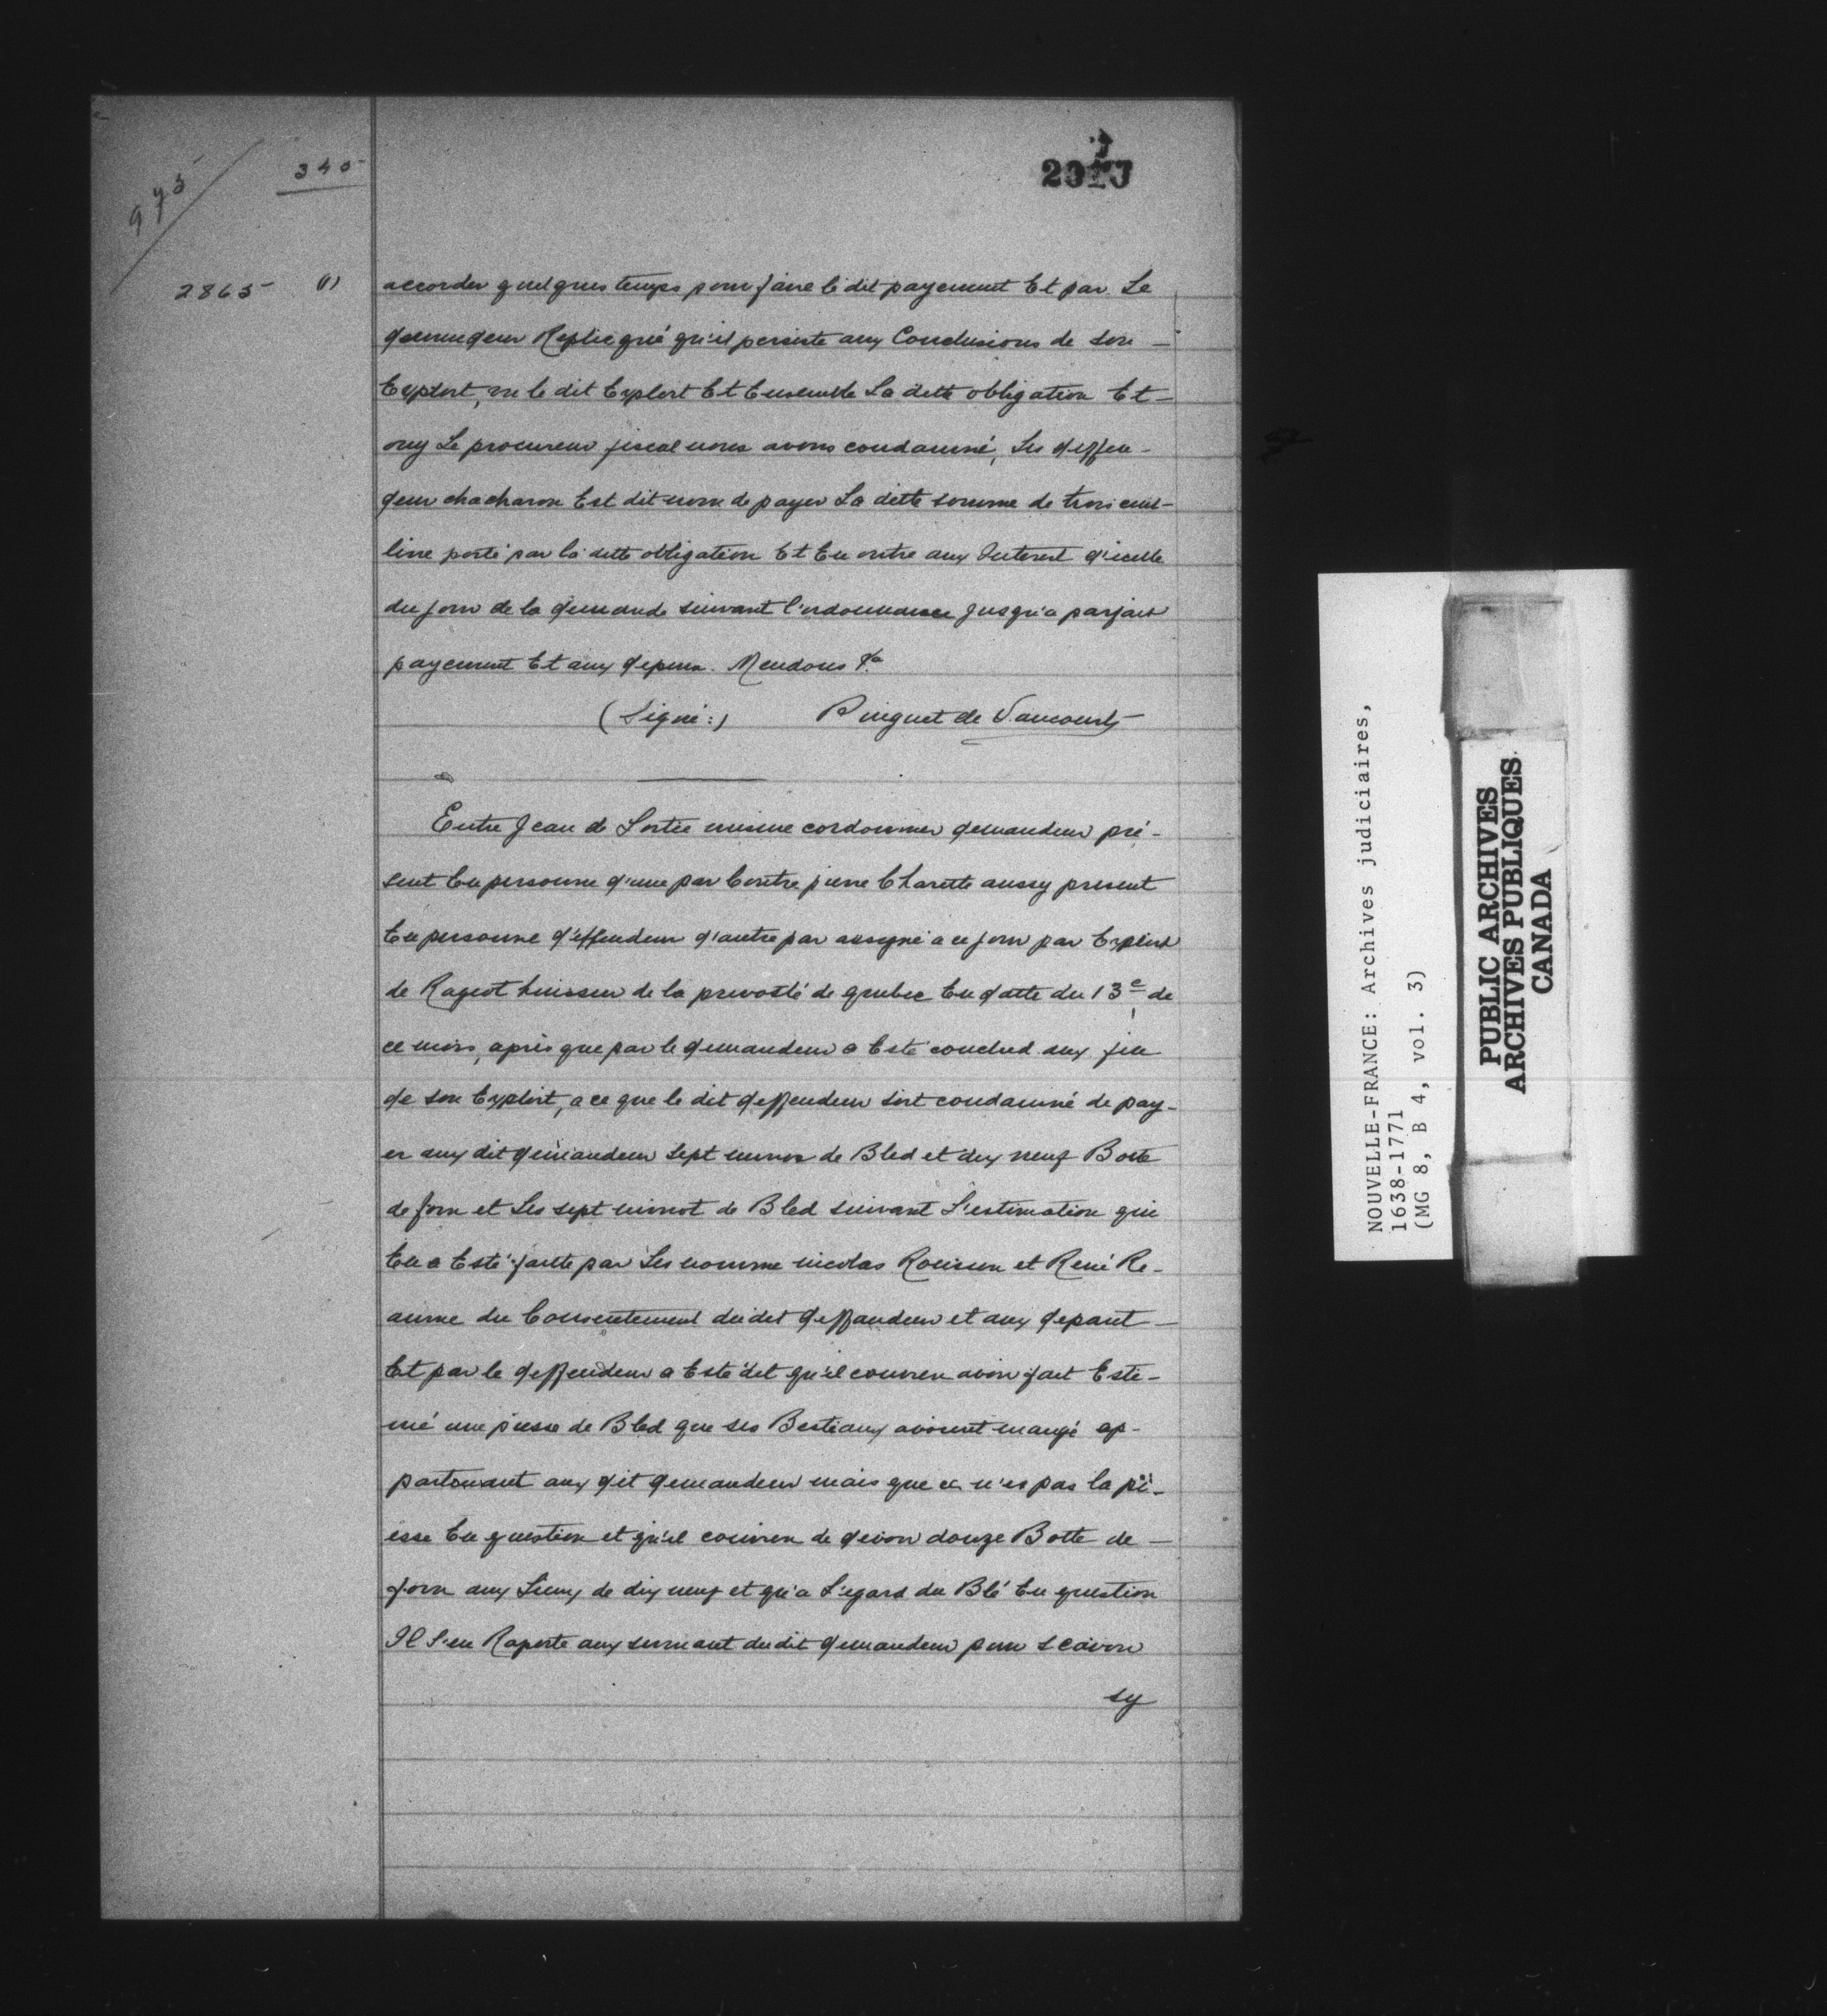 975
345
2865 (1)
accorder quelques temps pour faire le dit payement Et par Le
demendeur Replicqué qu'il persiste aux Conclusions de son —
Exploit, vu le dit Exploit Et Ensemble La ditte obligation Et —
ouy Le procureur fiscal nous avons condamné, Les deffen-
deur chacharon Est dit nom de payer La ditte somme de trois cent-
livre porté par la ditte obligation Et En outre aux Interest d'icelle
du jour de la demande suivant l'ordonnance Jusqu'a parfait
payement Et aux depens. Mendons &a
(Signé:) Pinguet de Vaucourt
Entre Jean de Lortie cordonnier demandeur pré-
sent En personne d'une par Contre pierre Charette aussy present
En personne d'effendeur d'autre par assigné a ce jour par Exploit
de Rageot huissier de la prevosté de quebec En datte du 13e de
ce mois, après que par le demandeur a Esté conclud aux fin
de son Exploit, a ce que le dit deffendeur soit condamné de pay-
er aux dit demandeur sept minos de Bled et dix neuf Botte
de foin et Les sept minot de Bled suivant L'estimation qui
En a Esté faitte par Les nomme nicolas Rousson et René Re-
aume du Consentement du dit deffandeur et aux depant —
Et par le deffendeur a Esté dit qu'il convien avoir fait Esti-
mé une piesse de Bled que ses Bestiaux avoient mangé ap-
partenant aux dit demandeur mais que ce n'es pas la pi-
esse En question et qu'il convien de devoir douze Botte de —
foin aux Lieux de dix neuf et qu'a L'egard du Blé En question
Il S'en Raporte aux sermant du dit demandeur pour scavoir
sy
NOUVELLE-FRANCE: Archives judiciaires,
1638-1771
(MG 8, B 4, vol. 3)
PUBLIC ARCHIVES
ARCHIVES PUBLIQUES
CANADA